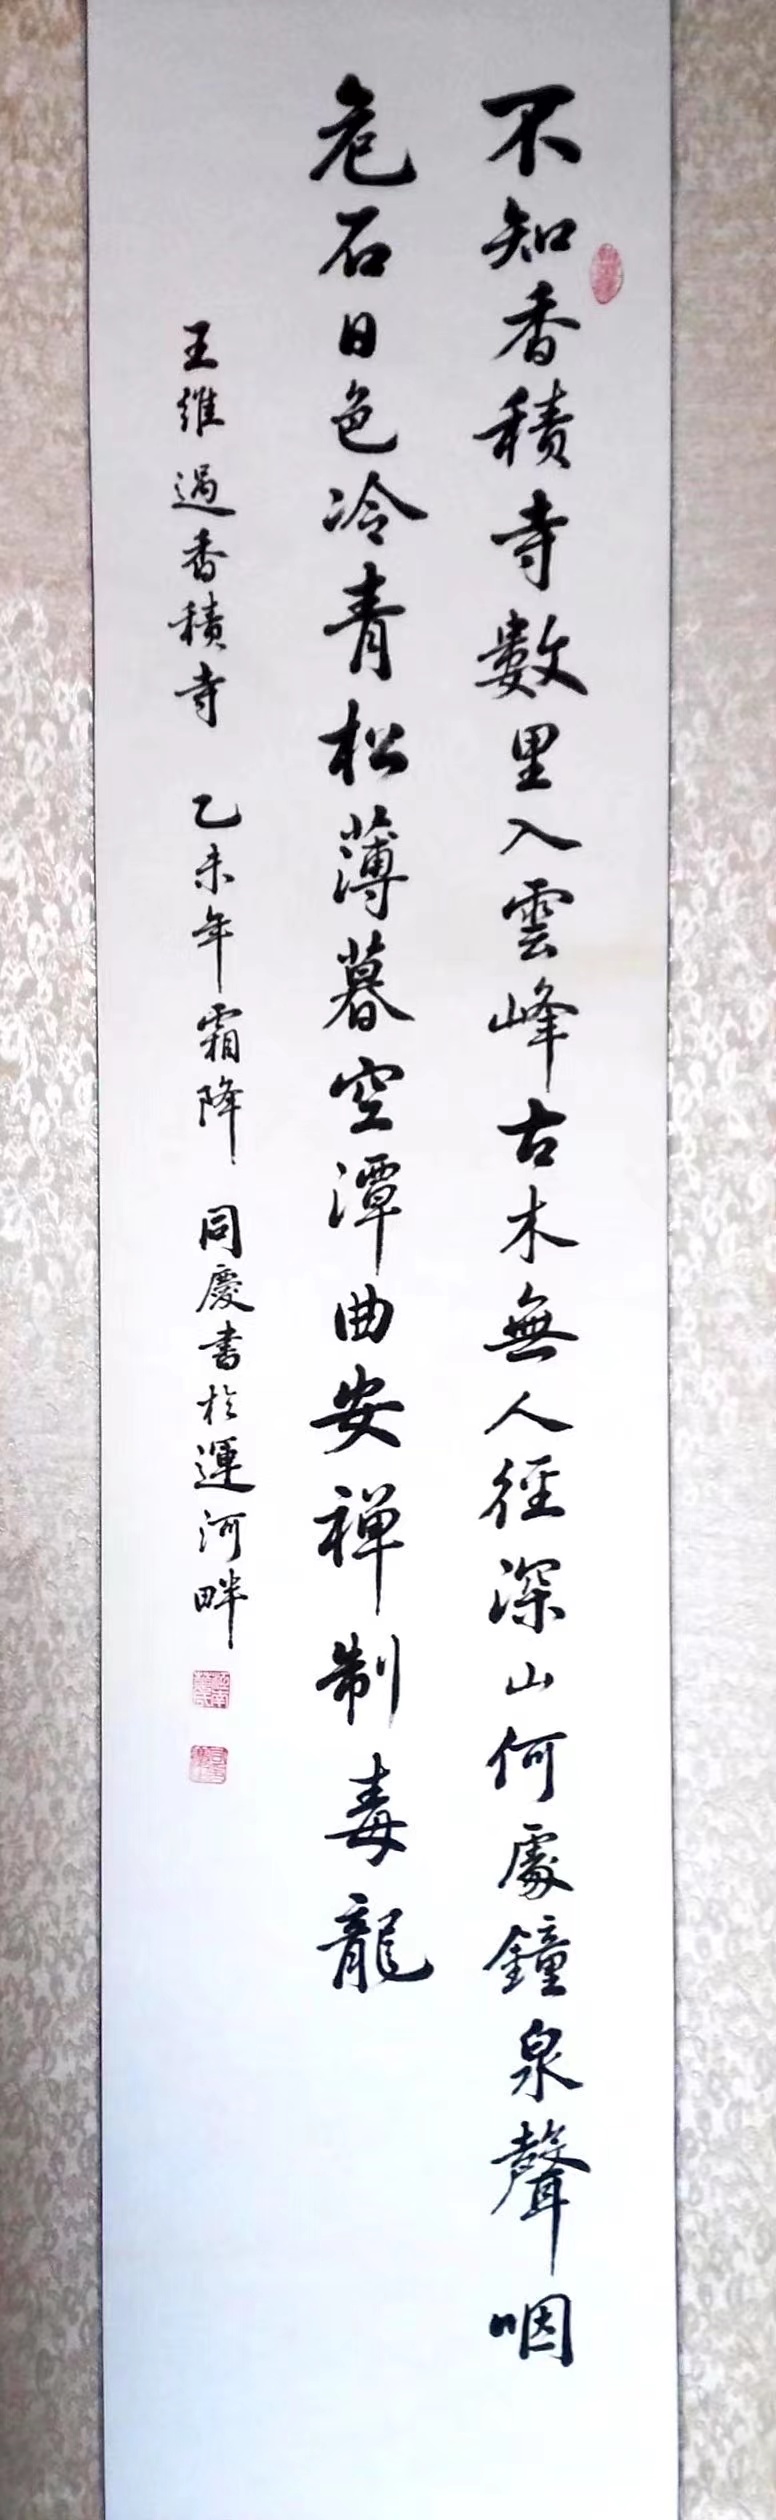 不知香積寺數里入雲峰古木無人徑深山何處鐘泉聲咽
危石日色冷青松薄暮空潭曲安禅制毒龍
王維過香積寺 乙未年霜降 同慶書於運河畔